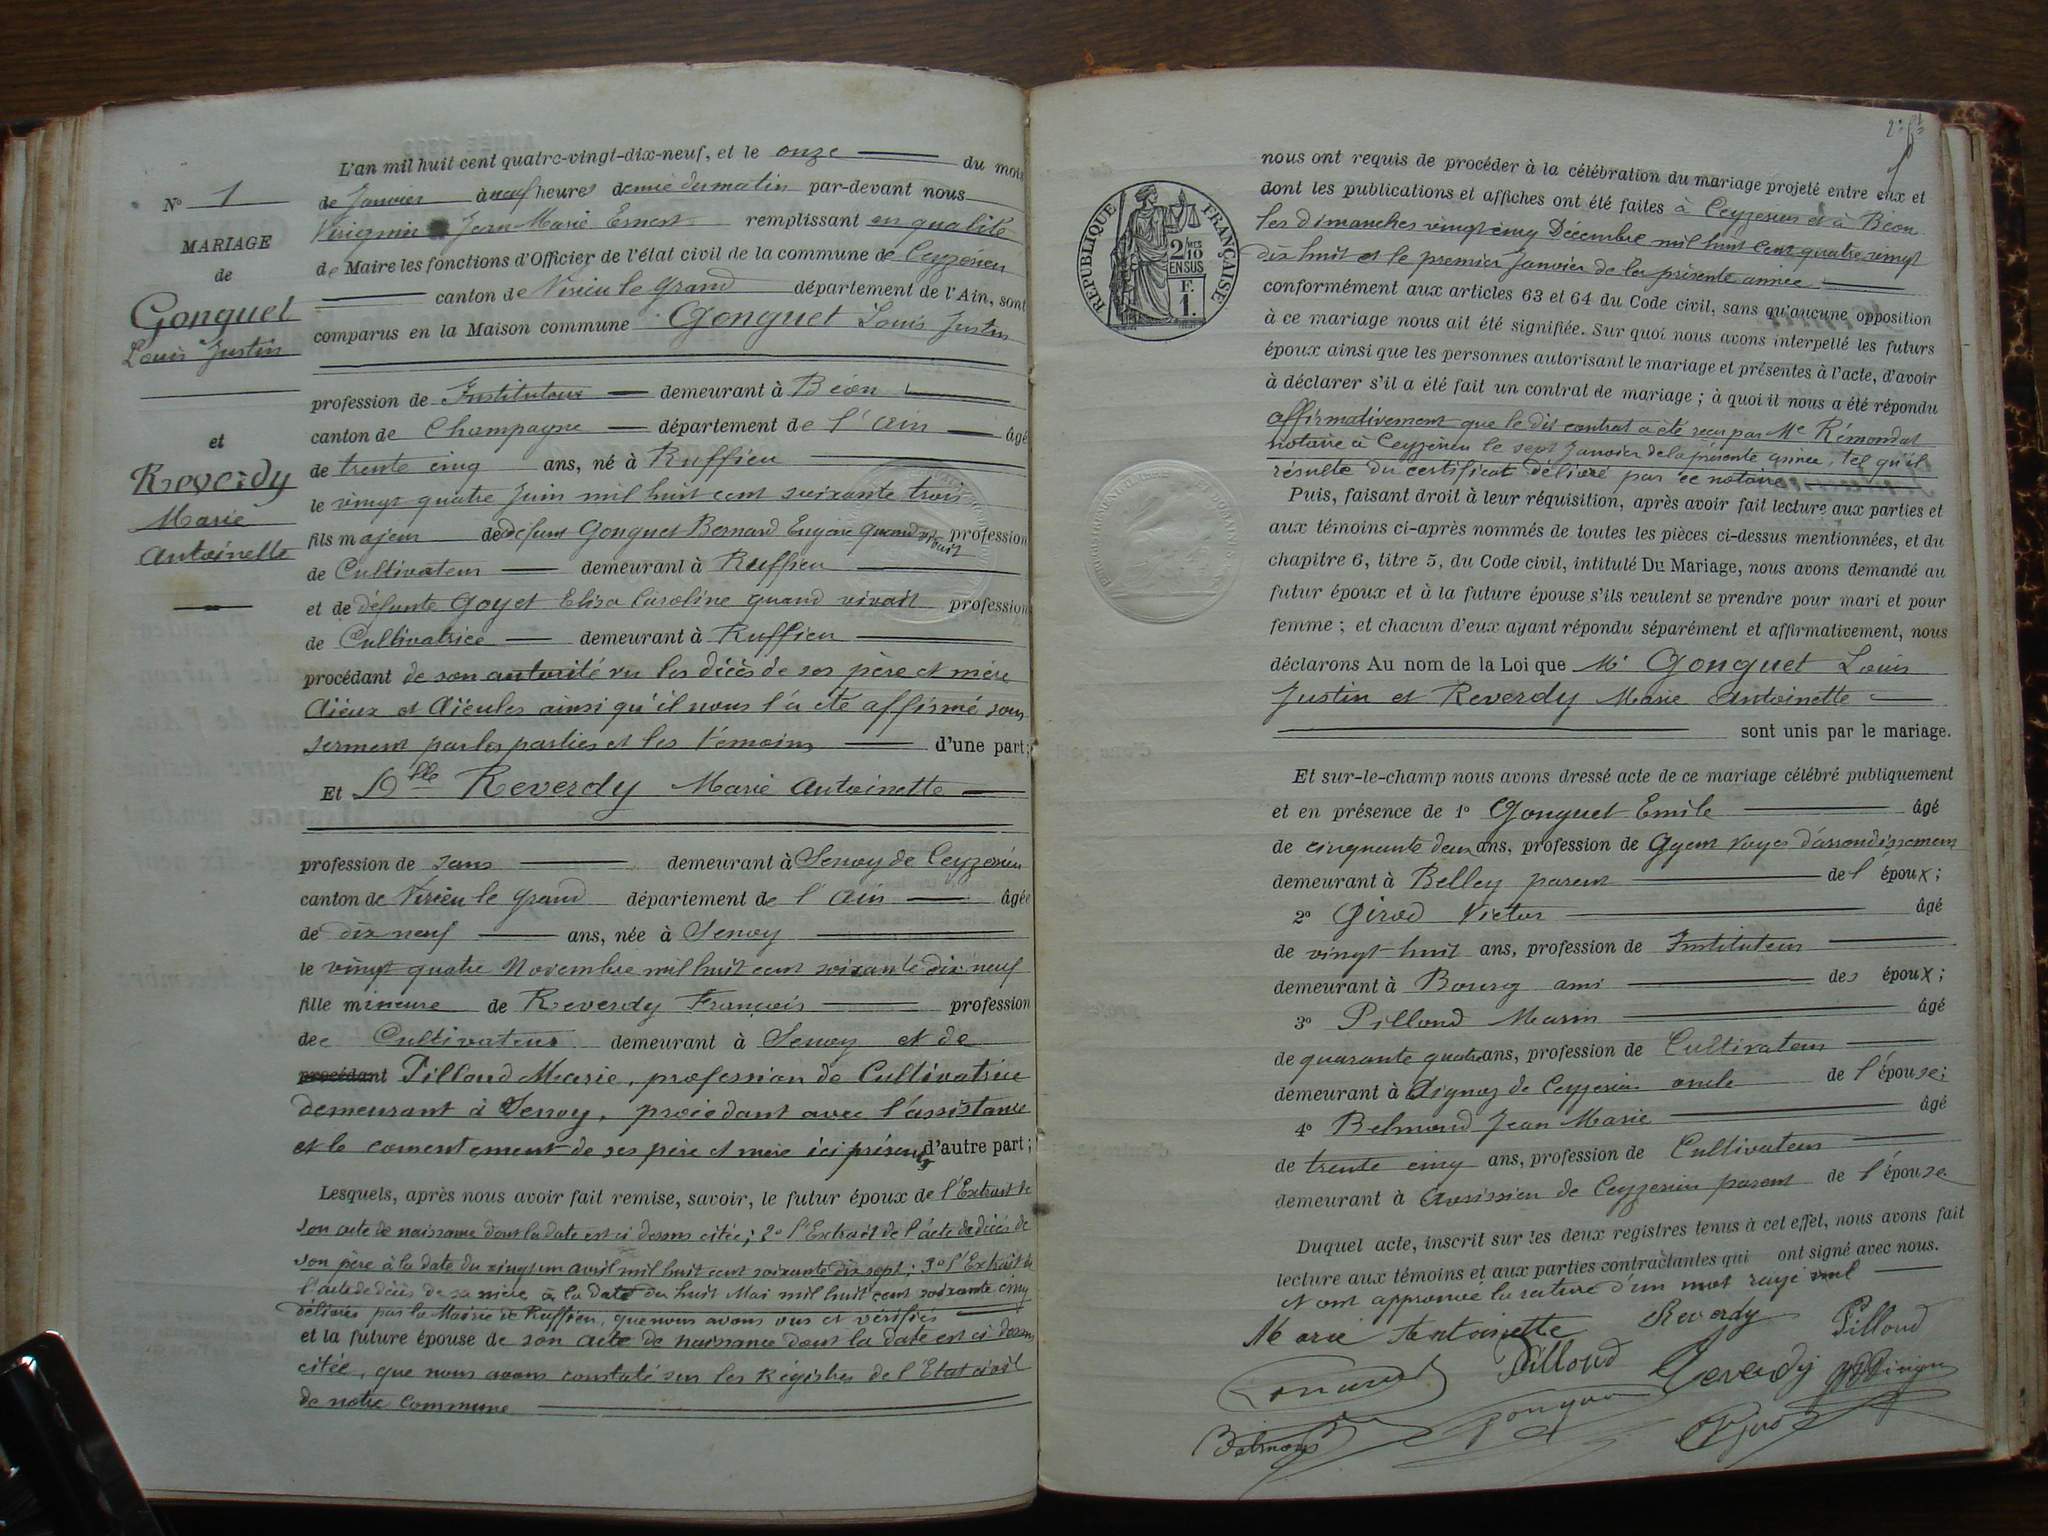 N° 1
MARIAGE
de
Gonguet
Louis Justin
et
Reverdy
Marie
Antoinette
L'an mil huit cent quatre-vingt-dix-neuf, et le onze du mois
de Janvier à neuf heures demie du matin par-devant nous
Virignin Jean Marie Ernest remplissant en qualité
de Maire les fonctions d'Officier de l'état civil de la commune de Ceyzérieu
canton de Virieu le Grand département de l'Ain, sont
comparus en la Maison commune Gonguet Louis Justin
profession de Instituteur demeurant à Béon
canton de Champagne département de l'Ain âgé
de trente cinq ans, né à Ruffieu
le vingt quatre Juin mil huit cent soixante trois
fils majeur de défunt Gonguet Bernard Eugène quand vivait profession
de Cultivateur demeurant à Ruffieu
et de défunte Goyet Elisa Caroline quand vivait profession
de Cultivatrice demeurant à Ruffieu
procédant de son autorité vu les décès de ses père et mère
Aïeux et Aïeules ainsi qu'il nous l'a été affirmé sous
serment par les parties et les témoins d'une part;
Et Dlle Reverdy Marie Antoinette
profession de sans demeurant à Senoy de Ceyzérieu
canton de Virieu le Grand département de l'Ain âgée
de dix neuf ans, née à Senoy
le vingt quatre Novembre mil huit cent soixante dix neuf
fille mineure de Reverdy François profession
de Cultivateur demeurant à Senoy et de
procédant Pilloud Marie, profession de Cultivatrice
demeurant à Senoy, procédant avec l'assistance
et le consentement de ses père et mère ici présents d'autre part;
Lesquels, après nous avoir fait remise, savoir, le futur époux de l'Extrait de
son acte de naissance dont la date est ci dessus citée; 2° l'Extrait de l'acte de décès de
son père à la date du vingt un avril mil huit cent soixante dix sept; 3° l'Extrait de
l'acte de décès de sa mère à la date du huit Mai mil huit cent soixante cinq
délivrés par la Mairie de Ruffieu, que nous avons vus et vérifiés
et la future épouse de son acte de naissance dont la date est ci dessus
citée, que nous avons constaté sur les Régistres de l'Etat civil
de notre Commune
nous ont requis de procéder à la célébration du mariage projeté entre eux et
dont les publications et affiches ont été faites à Ceyzérieu et à Béon
les dimanches vingt cinq Décembre mil huit cent quatre vingt
dix huit et le premier Janvier de la présente année
REPUBLIQUE FRANÇAISE
2/10
EN SUS
F.
1.
conformément aux articles 63 et 64 du Code civil, sans qu'aucune opposition
à ce mariage nous ait été signifiée. Sur quoi nous avons interpellé les futurs
époux ainsi que les personnes autorisant le mariage et présentes à l'acte, d'avoir
à déclarer s'il a été fait un contrat de mariage; à quoi il nous a été répondu
affirmativement que le dit contrat a été reçu par Me Rémondat
notaire à Ceyzérieu le sept Janvier de la présente année, tel qu'il
résulte du certificat délivré par ce notaire
Puis, faisant droit à leur réquisition, après avoir fait lecture aux parties et
aux témoins ci-après nommés de toutes les pièces ci-dessus mentionnées, et du
chapitre 6, titre 5, du Code civil, intitulé Du Mariage, nous avons demandé au
futur époux et à la future épouse s'ils veulent se prendre pour mari et pour
femme; et chacun d'eux ayant répondu séparément et affirmativement, nous
déclarons Au nom de la Loi que Mr Gonguet Louis
Justin et Reverdy Marie Antoinette
sont unis par le mariage.
Et sur-le-champ nous avons dressé acte de ce mariage célébré publiquement
et en présence de 1° Gonguet Emile âgé
de cinquante deux ans, profession de Agent Voyer d'arrondissement
demeurant à Belley parent de l'époux;
2° Girod Victor âgé
de vingt huit ans, profession de Instituteur
demeurant à Bourg ami des époux;
3° Pilloud Marin âgé
de quarante quatre ans, profession de Cultivateur
demeurant à Aignoz de Ceyzérieu oncle de l'épouse;
4° Belmond Jean Marie âgé
de trente cinq ans, profession de Cultivateur
demeurant à Avrissieu de Ceyzérieu parent de l'épouse
Duquel acte, inscrit sur les deux registres tenus à cet effet, nous avons fait
lecture aux témoins et aux parties contractantes qui ont signé avec nous.
et ont approuvé la rature d'un mot rayé nul
Marie Antoinette Reverdy Pilloud
Pilloud Reverdy
Gonguet
Belmond Girod